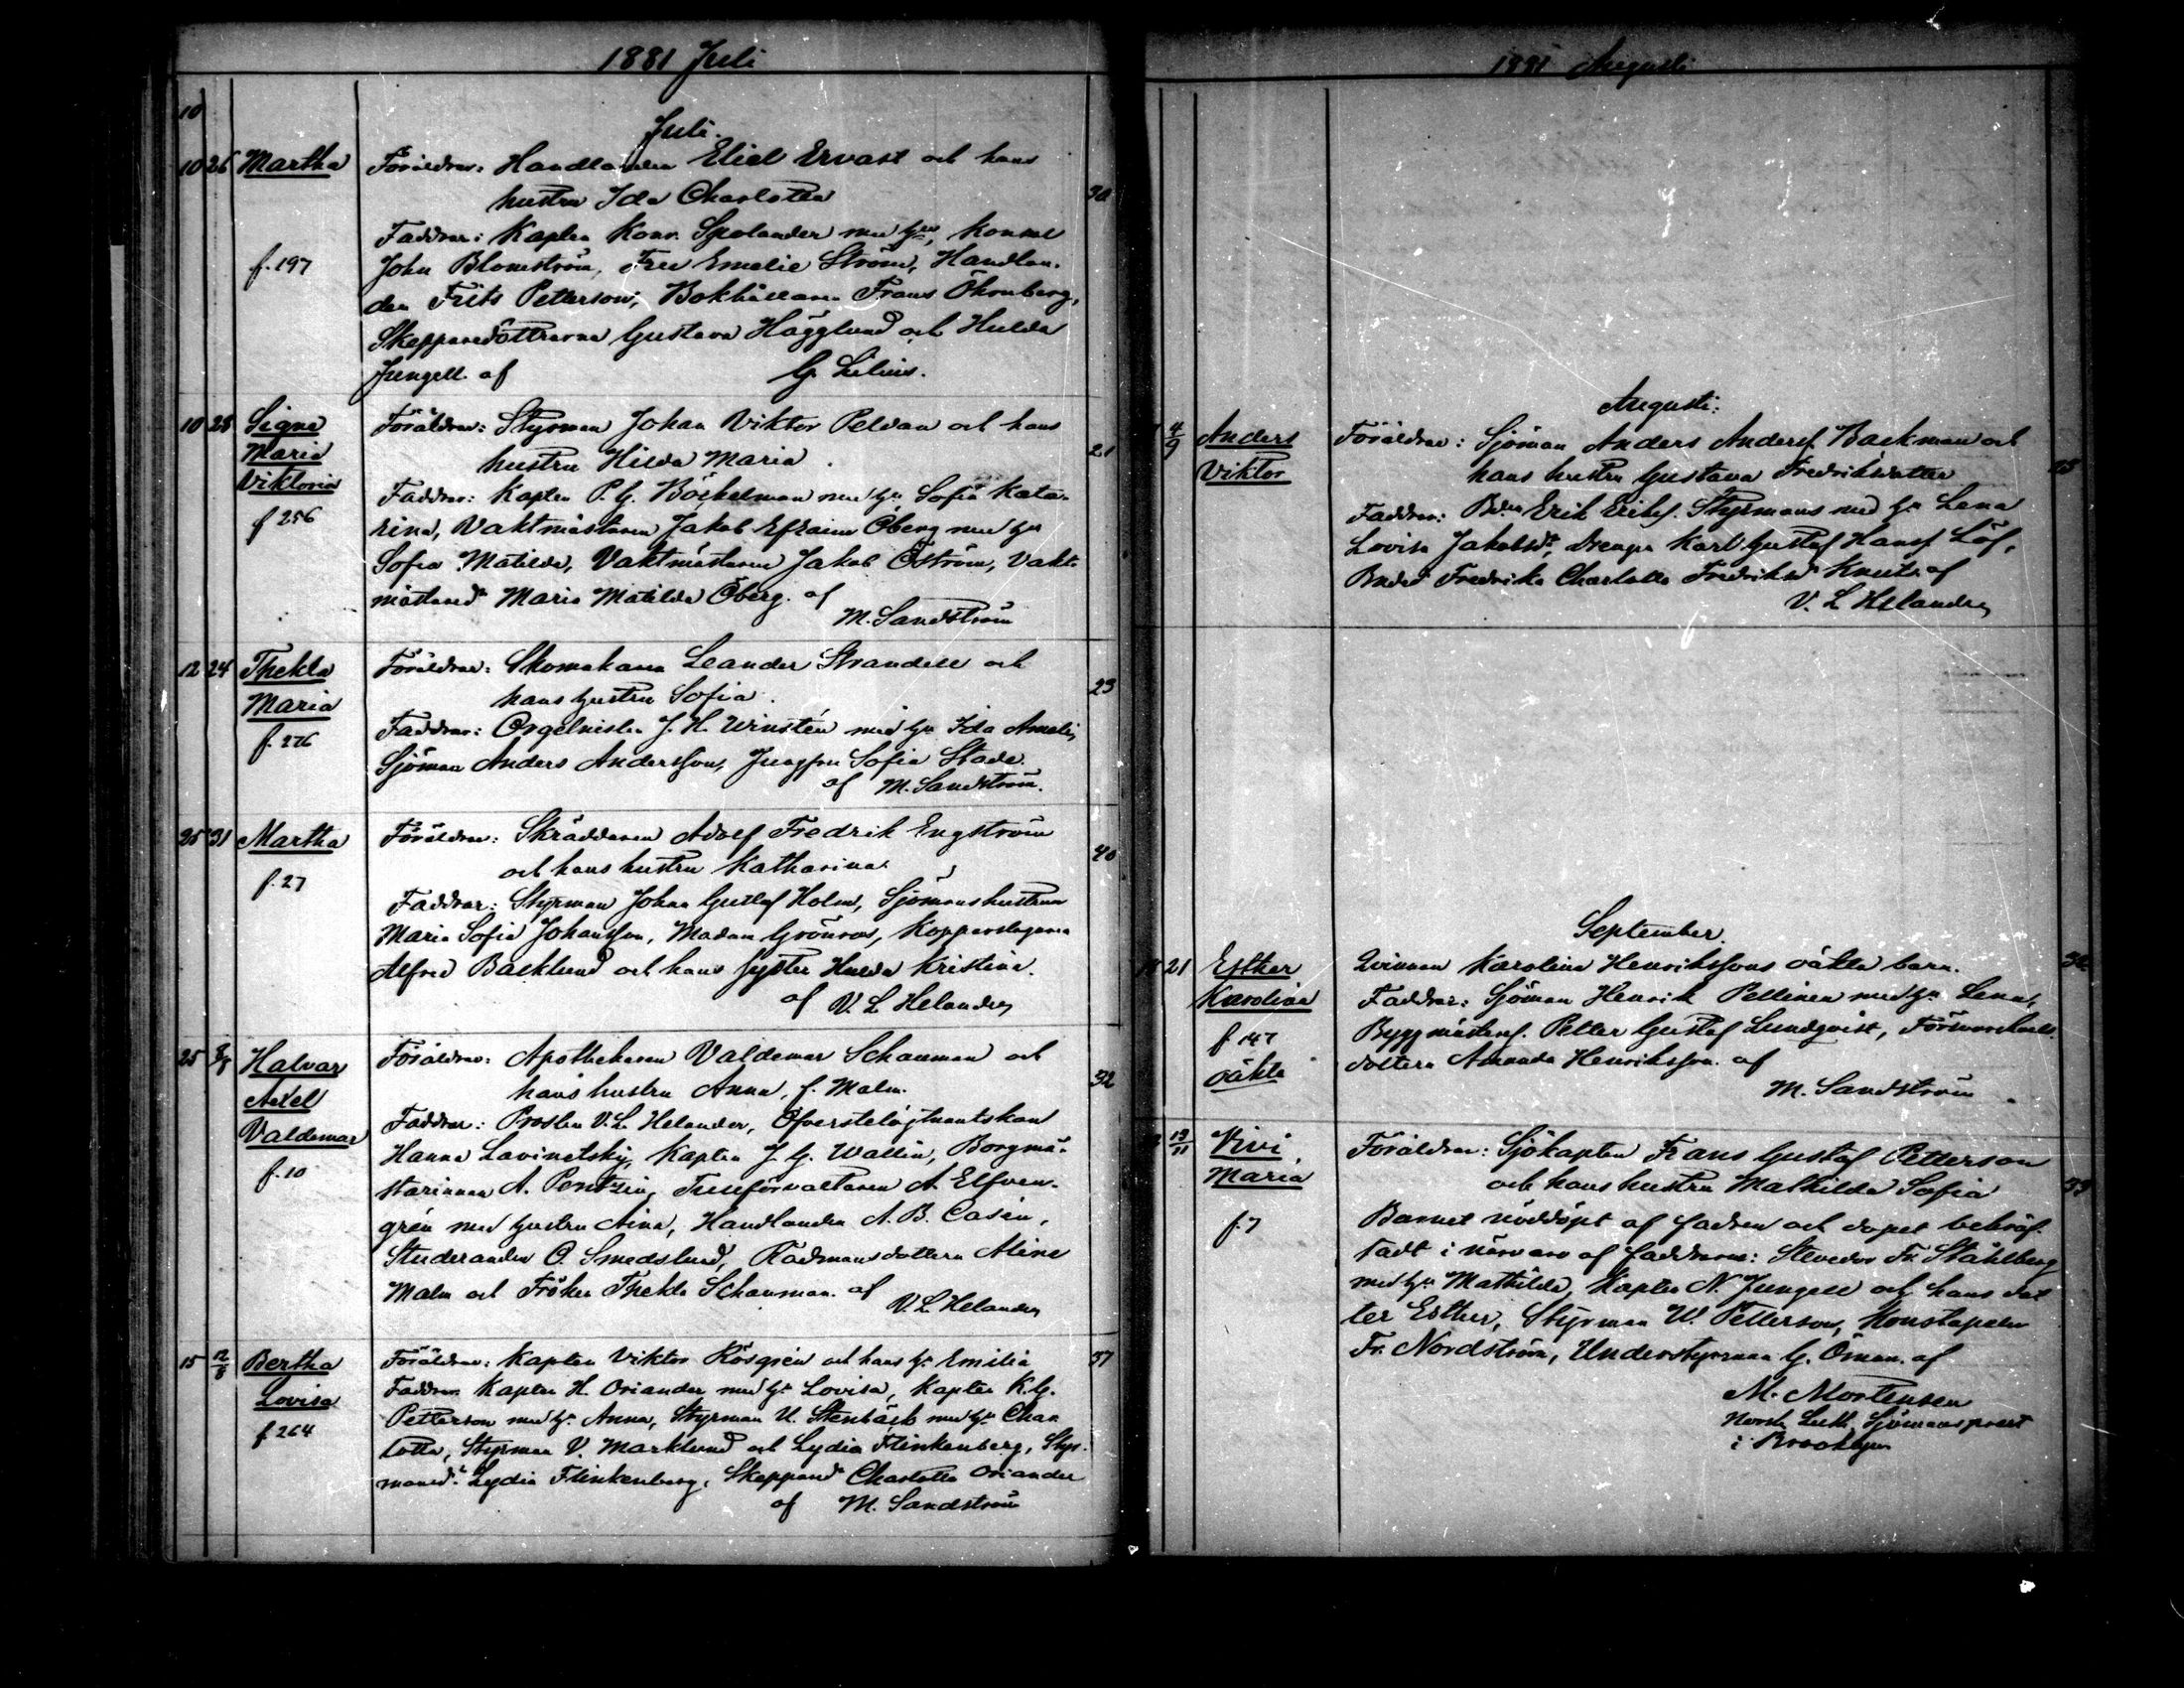 1881 Juli
10
Juli.
10 26 Martha Föräldrar: Handlanden Eliel Ervast och hans
hustru Ida Charlotta 30
Faddrar: Kapten Konr. Sjelander med hu,
f. 197 John Blomström, Fru Emelie Ström, Handlan-
den Frits Petterson, Bokhållaren Frans Öhrnberg,
Skepparedöttrarna Gustava Hägglund och Hulda
Jungell. af G. Lilius.
10 28 Signe Föräldrar: Styrman Johan Viktor Peldan och hans
Maria hustru Hilda Maria. 21
Viktoria Faddrar: Kapten P. G. Böckelman med hu Sofia Kata-
f 256 rina, Vaktmästaren Jakob Efraim Öberg med hu
Sofia Matilda, Vaktmästaren Jakob Öström, Vakt-
mästared. Maria Matilda Öberg. af
M. Sandström
12 24 Thekla Föräldrar: Skomakaren Leander Strandell och
Maria hans hustru Sofia. 23
f. 276 Faddrar: Orgelnisten J. H. Winstén med hu Ida Amalia,
Sjöman Anders Andersson, Jungfru Sofia Stade.
af M. Sandström.
25 31 Martha Föräldrar: Skräddaren Adolf Fredrik Engström
och hans hustru Katharina. 40
f. 27 Faddrar: Styrman Johan Gustaf Holm, Sjömanshustrun
Maria Sofia Johansson, Madam Grönroos, Kopparslagaren
Alfred Backlund och hans syster Hulda Kristina.
af V. L. Helander
25 8/8 Halvar Föräldrar: Apothekaren Valdemar Schauman och
Axel hans hustru Anna, f. Malm. 32
Valdemar Faddrar: Prosten V. L. Helander, Öfverstelöjtnantskan
f. 10 Hanna Lavinetskij, Kapten J. G. Wallin, Borgmä-
starinnan A. Pentzin, Tullförvaltaren A. Elfven-
grén med hustru Aina, Handlanden A. B. Casén,
Studeranden O. Smedslund, Rådmansdottern Aline
Malm och Fröken Thekla Schauman. af
V. L. Helander
15 12/8 Bertha Föräldrar: Kapten Viktor Rosgrén och hans hu Emilia 37
Lovisa Faddrar: Kapten H. Oriander med hu Lovisa, Kapten K. G.
f 264 Petterson med hu Anna, Styrman U. Stenbäck med hu Char-
lotta, Styrman V. Marklund och Lydia Flinkenberg, Styr-
mansd. Lydia Flinkenberg, Skeppared. Charlotta Oriander
af M. Sandström
1881 Augusti
Augusti:
4/9 Anders Föräldrar: Sjöman Anders Andersf. Backman och
Viktor hans hustru Gustava Fredriksdotter
Faddrar: Erik Eriksf. Styrmans med hu Lena
Lovisa Jakobsdr, Drengen Karl Gustaf Hansf. Löf,
Fredrika Charlotta Fredriksdr Knuts. af
V. L. Helander
September.
21 Esther Qvinnan Karolina Henrikssons oäkta barn.
Karolina Faddrar: Sjöman Henrik Pellinen med hu Lena,
f 147 Byggmästaref. Petter Gustaf Lundqvist,
oäkta dottern Amanda Henriksson. af
M. Sandström
13/11 Vivi Föräldrar: Sjökapten Frans Gustaf Petterson
Maria och hans hustru Mathilda Sofia
f. 7 Barnet nöddöpt af fadren och dopet bekräf-
tadt i närvaro af faddrarne: Stevedor Fr. Ståhlberg
med hu Mathilda, Kapten N. Jungell och hans dot-
ter Esther, Styrman W. Petterson, Konstapeln
Fr. Nordström, Understyrman G. Öman. af
M. Mortensen
Norsk Luth. Sjömansprest
i Brooklyn